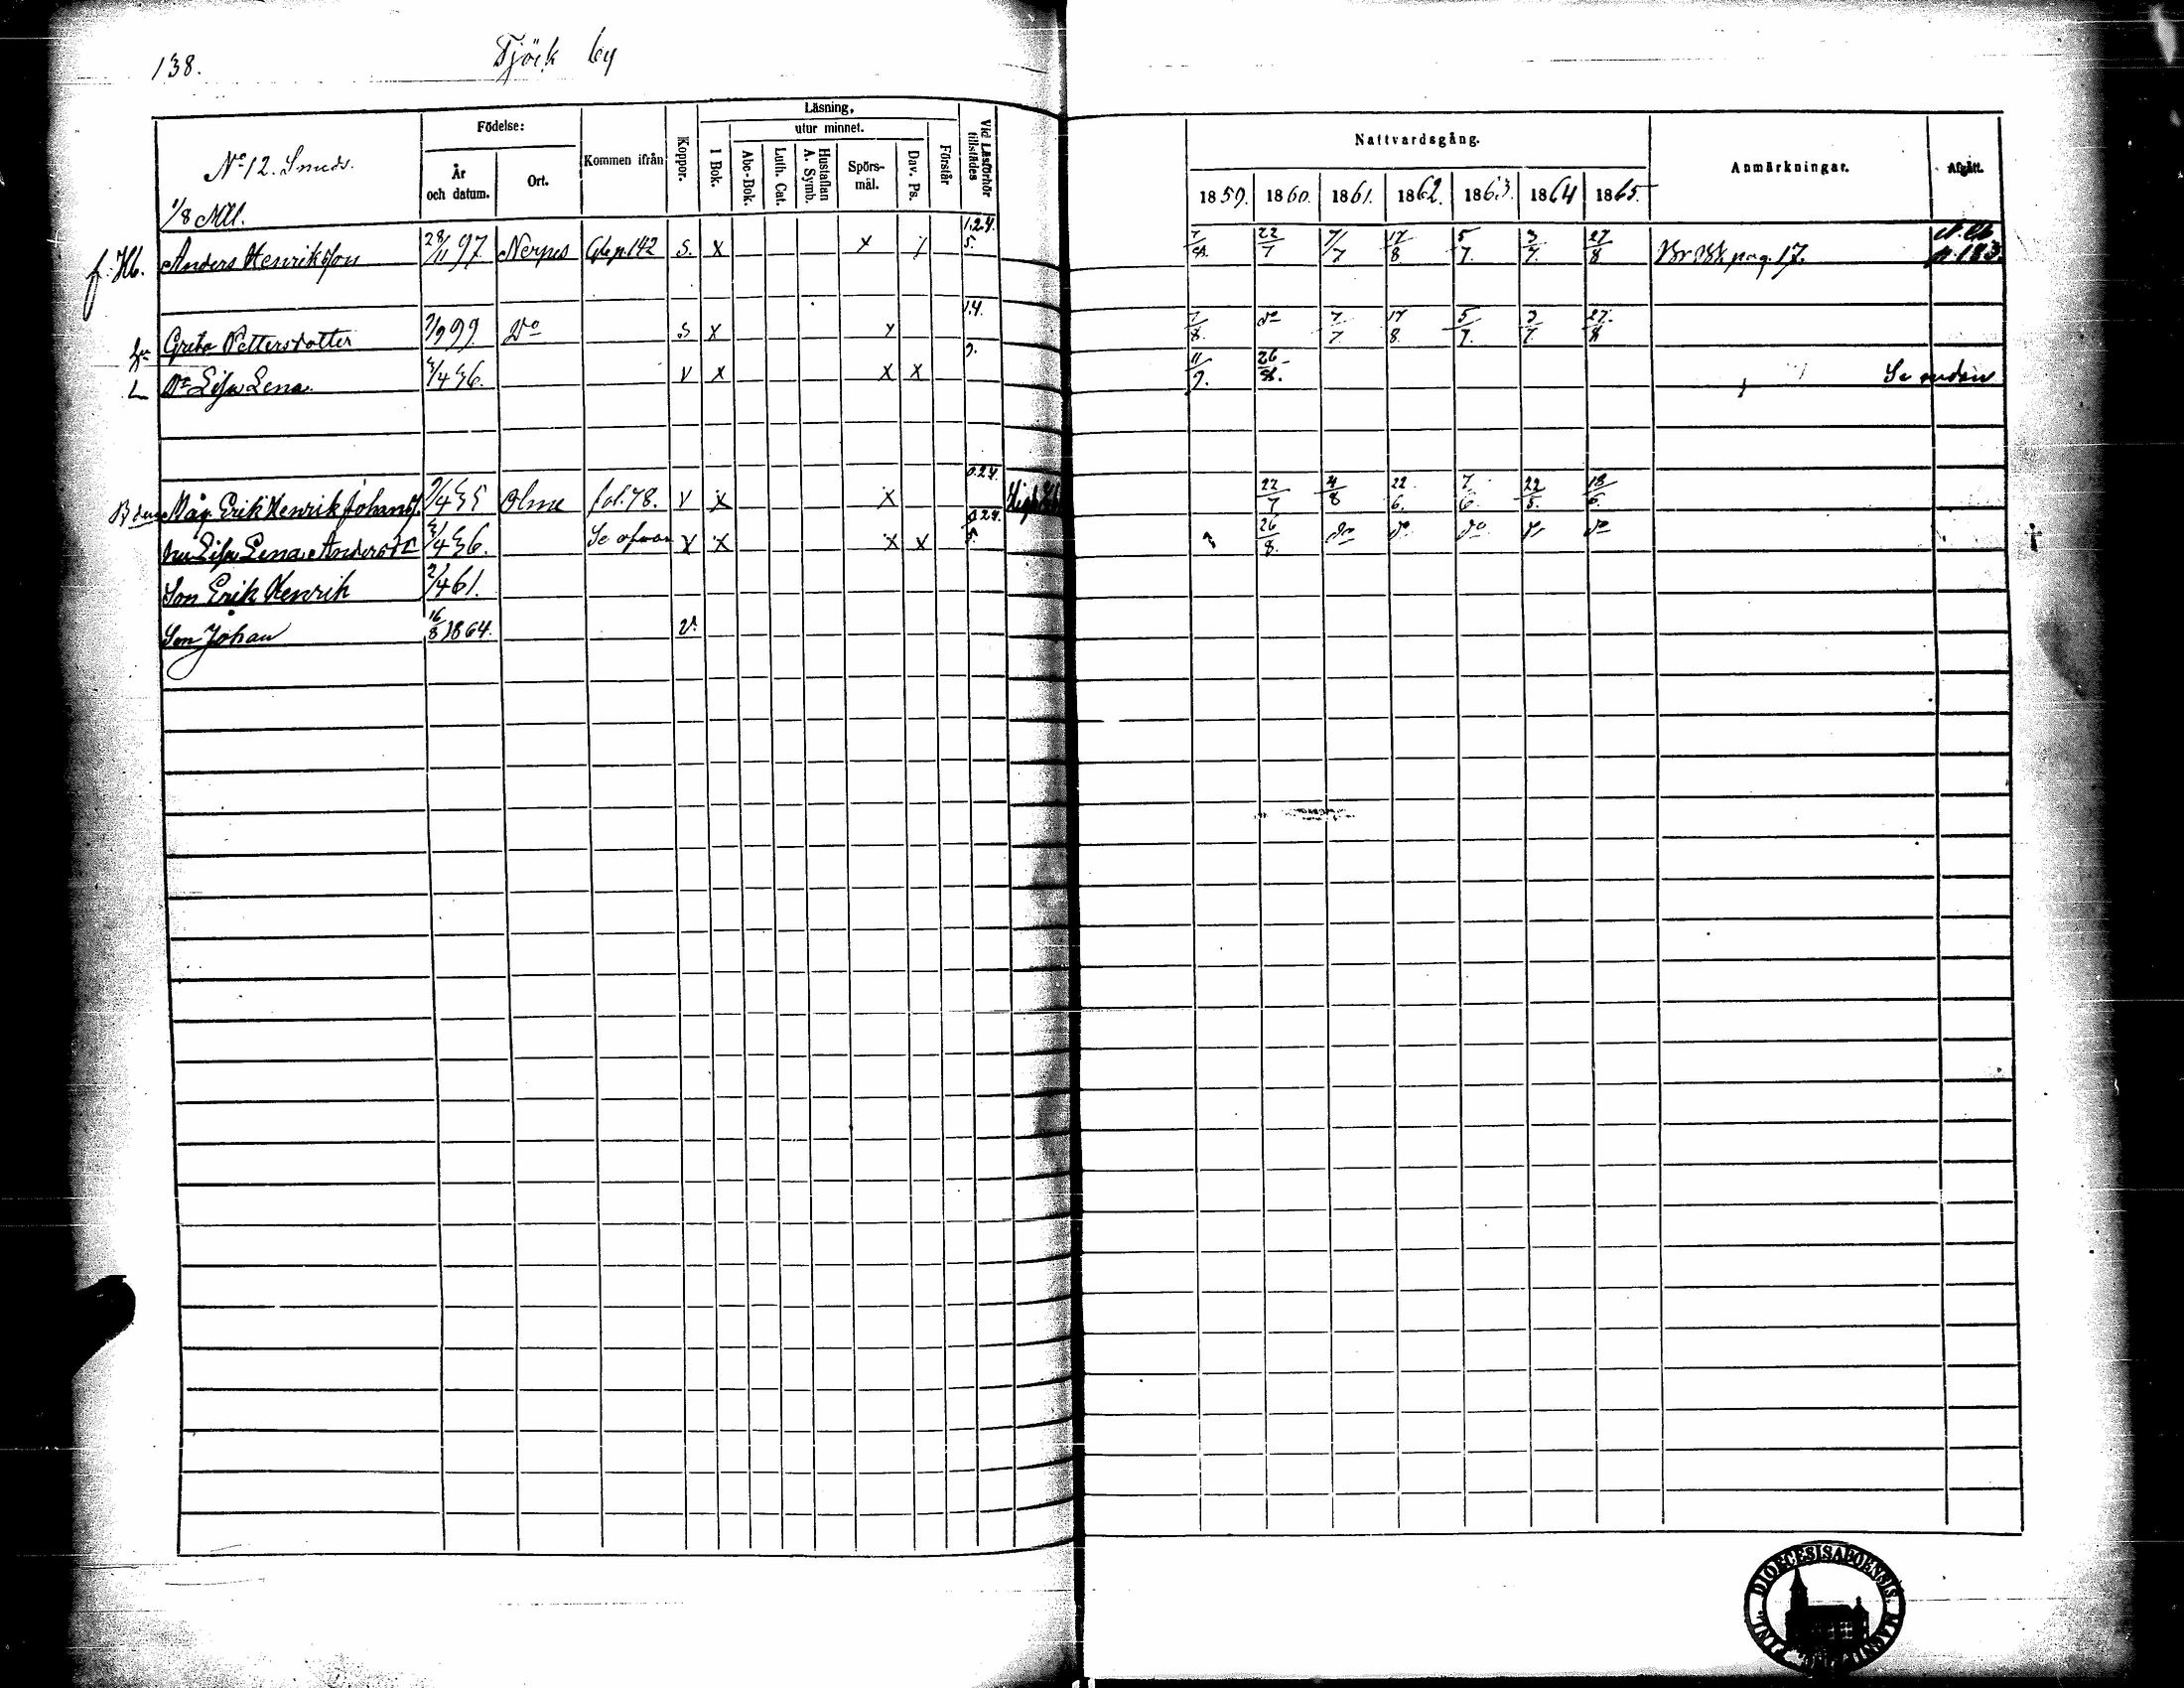 138. Tjöck by
Läsning,
Födelse: utur minnet. Nattvardsgång.
No 12. Smeds. År och datum. Ort. Kommen ifrån Koppor. I Bok. Abc-Bok. Luth. Cat. Hustaflan A. Symb. Spörs-mål. Dav. Ps. Förstår Vid Läsförhör tillstädes 1859. 1860. 1861. 1862. 1863. 1864 1865. Anmärkningar. Afgått.
1/8 Mtl.
f. Hb. Anders Henriksson 28/11 97 Nerpes Gb p. 142 S. X X 1.2.4. 5. 7/8. 22/7 7/7 17/8. 5/7. 3/7. 27/8 pag. 17. p. 183.
Greta Pettersdotter 7/9 99 Do S X X 1.4. 7/8. do 7/7 17/8. 5/7. 3/7. 27/8
Dr Lisa Lena 3/4 36. V X X X 9. 11/9. 26/8. Se nedan
Måg Erik Henrik Johans. 9/4 35 fol. 78. V X X 0.2.4. 22/7 4/8 22/6. 7/6. 22/5. 18/6.
hu Lisa Lena Andersdr 3/4 36. Se ofvan V X X X 26/8. do do do do do †
Son Erik Henrik 2/4 61.
Son Johan 16/8 1864. v.
DIOECESIS ABOENSIS